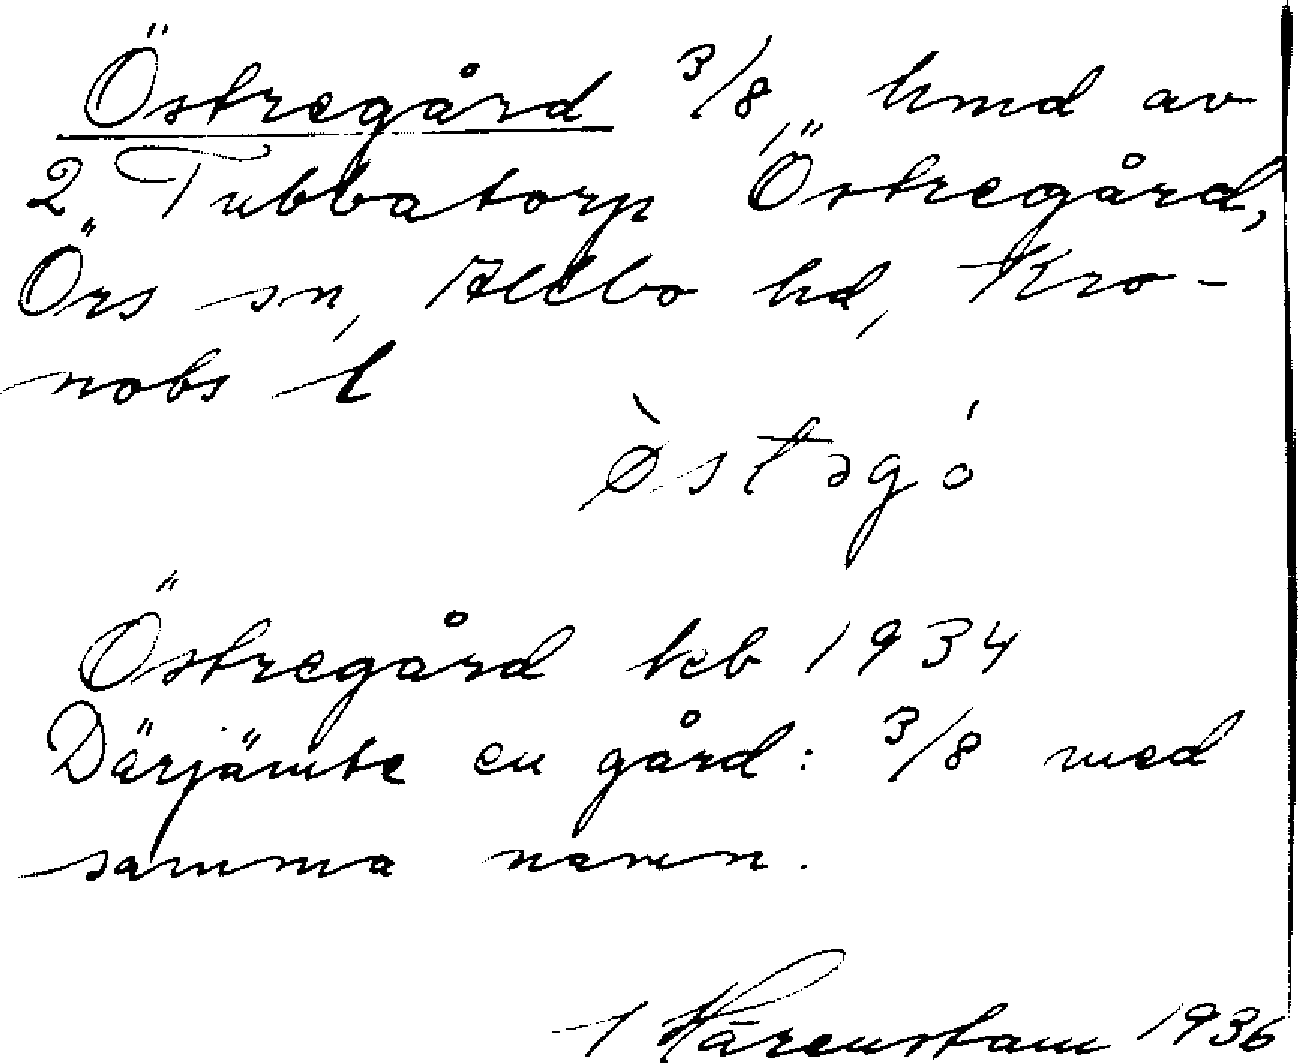 Östregård 3/8 hmd av
2 Tubbatorp Östregård,
Örs sn, Allbo hd, Kro-
nobs l
o̊̀stəgó
Östregård keb 1934
Därjämte en gård: 3/8 med
samma namn.
1 Härenstam 1936